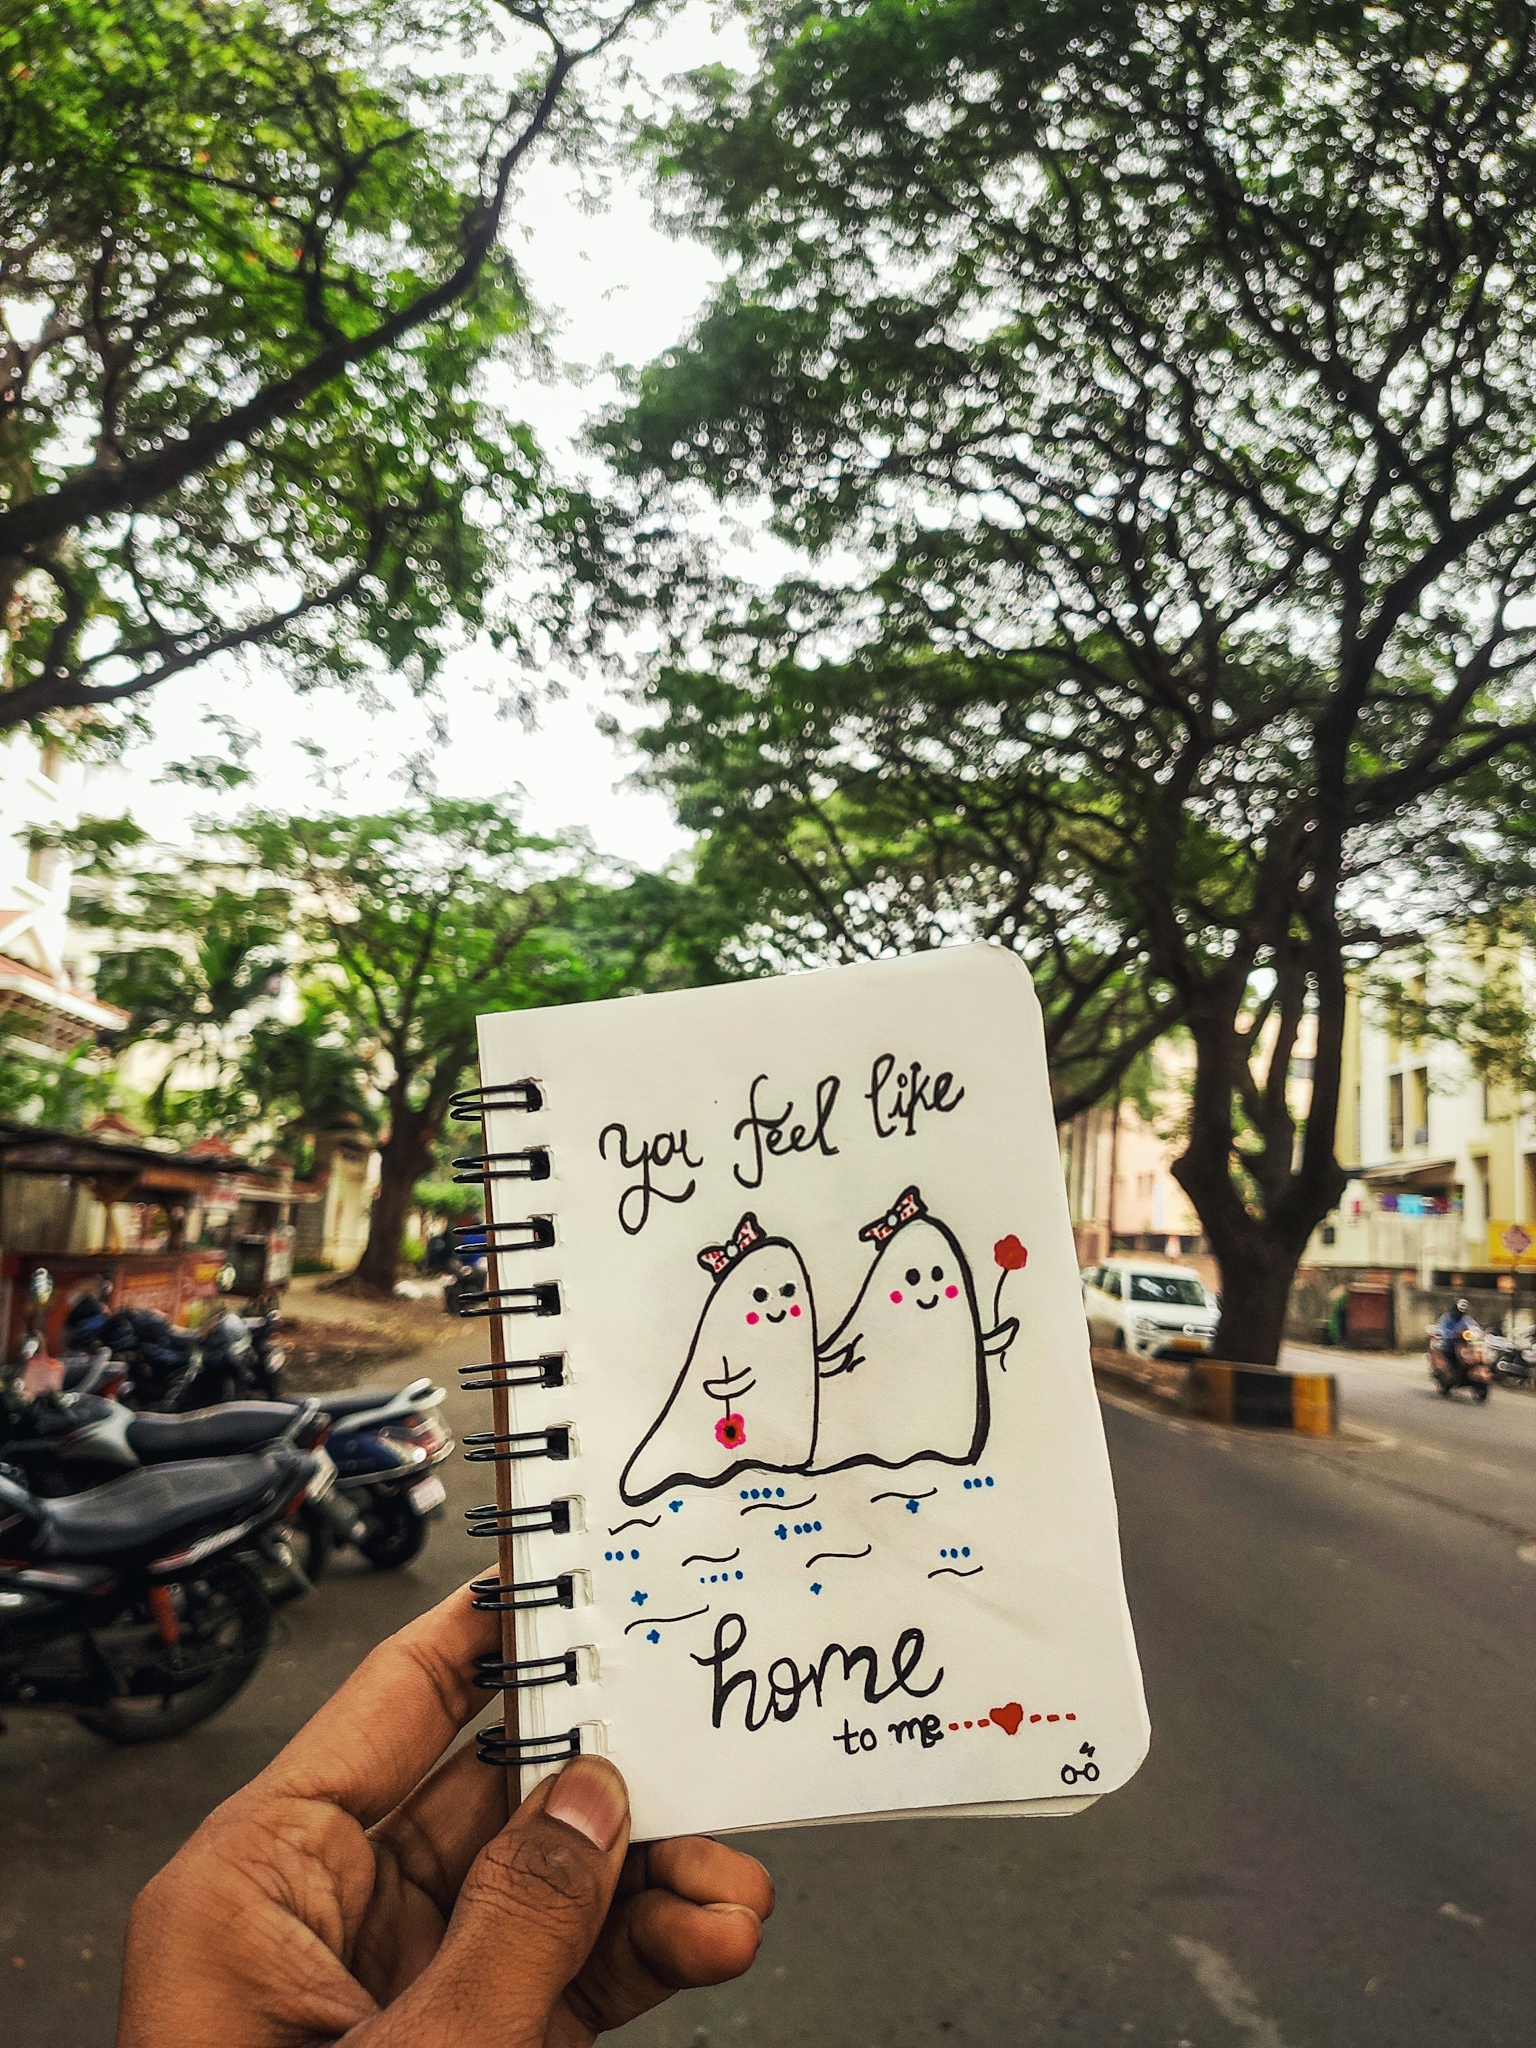 you feel like
home
to me